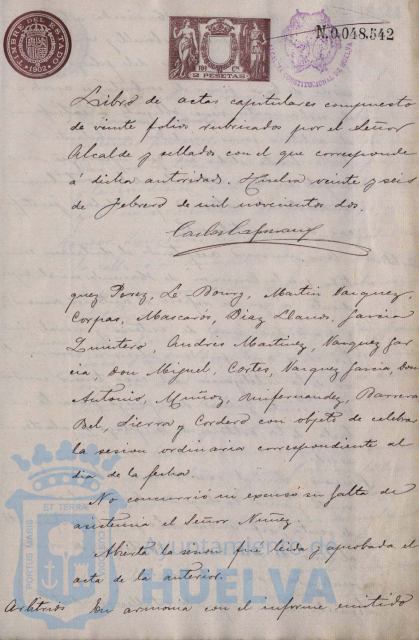 TIMBRE DEL ESTADO
1902
2 PESETAS
N.0.048.542
ALCALDIA CONSTITUCIONAL DE HUELVA
Libro de actas capitulares compuesto
de veinte folios rubricados por el Señor
Alcalde y sellados con el que corresponde
á dicha autoridad. Huelva veinte y seis
de Febrero de mil novecientos dos.
quez Perez, Le Bourg, Martin Vazquez,
Corpas, Mascarós, Diaz Llanos, Garcia
Quintero, Andres Martinez, Vazquez Gar
cia, Don Miguel, Cortes, Vazquez Garcia, Don
Antonio, Muñoz, Barrera
Bel, Sierra y Cordero con objeto de celebra
la sesion ordinaria correspondiente al
dia de la fecha.
No concurrió ni escusó su falta de
asistencia el Señor Nuñez
Abierta la sesion fué leida y aprobada el
acta de la anterior.
Arbitrios En armonia con el informe emitido
PORTUS MARIS ET TERRAE CUSTODIA
Ayuntamiento de
HUELVA